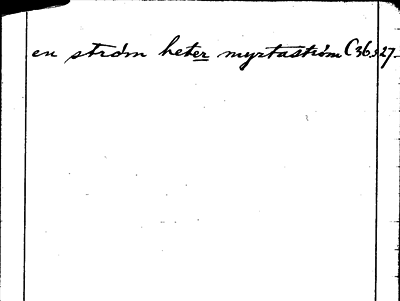 en ström heter myrtaström C36s27-